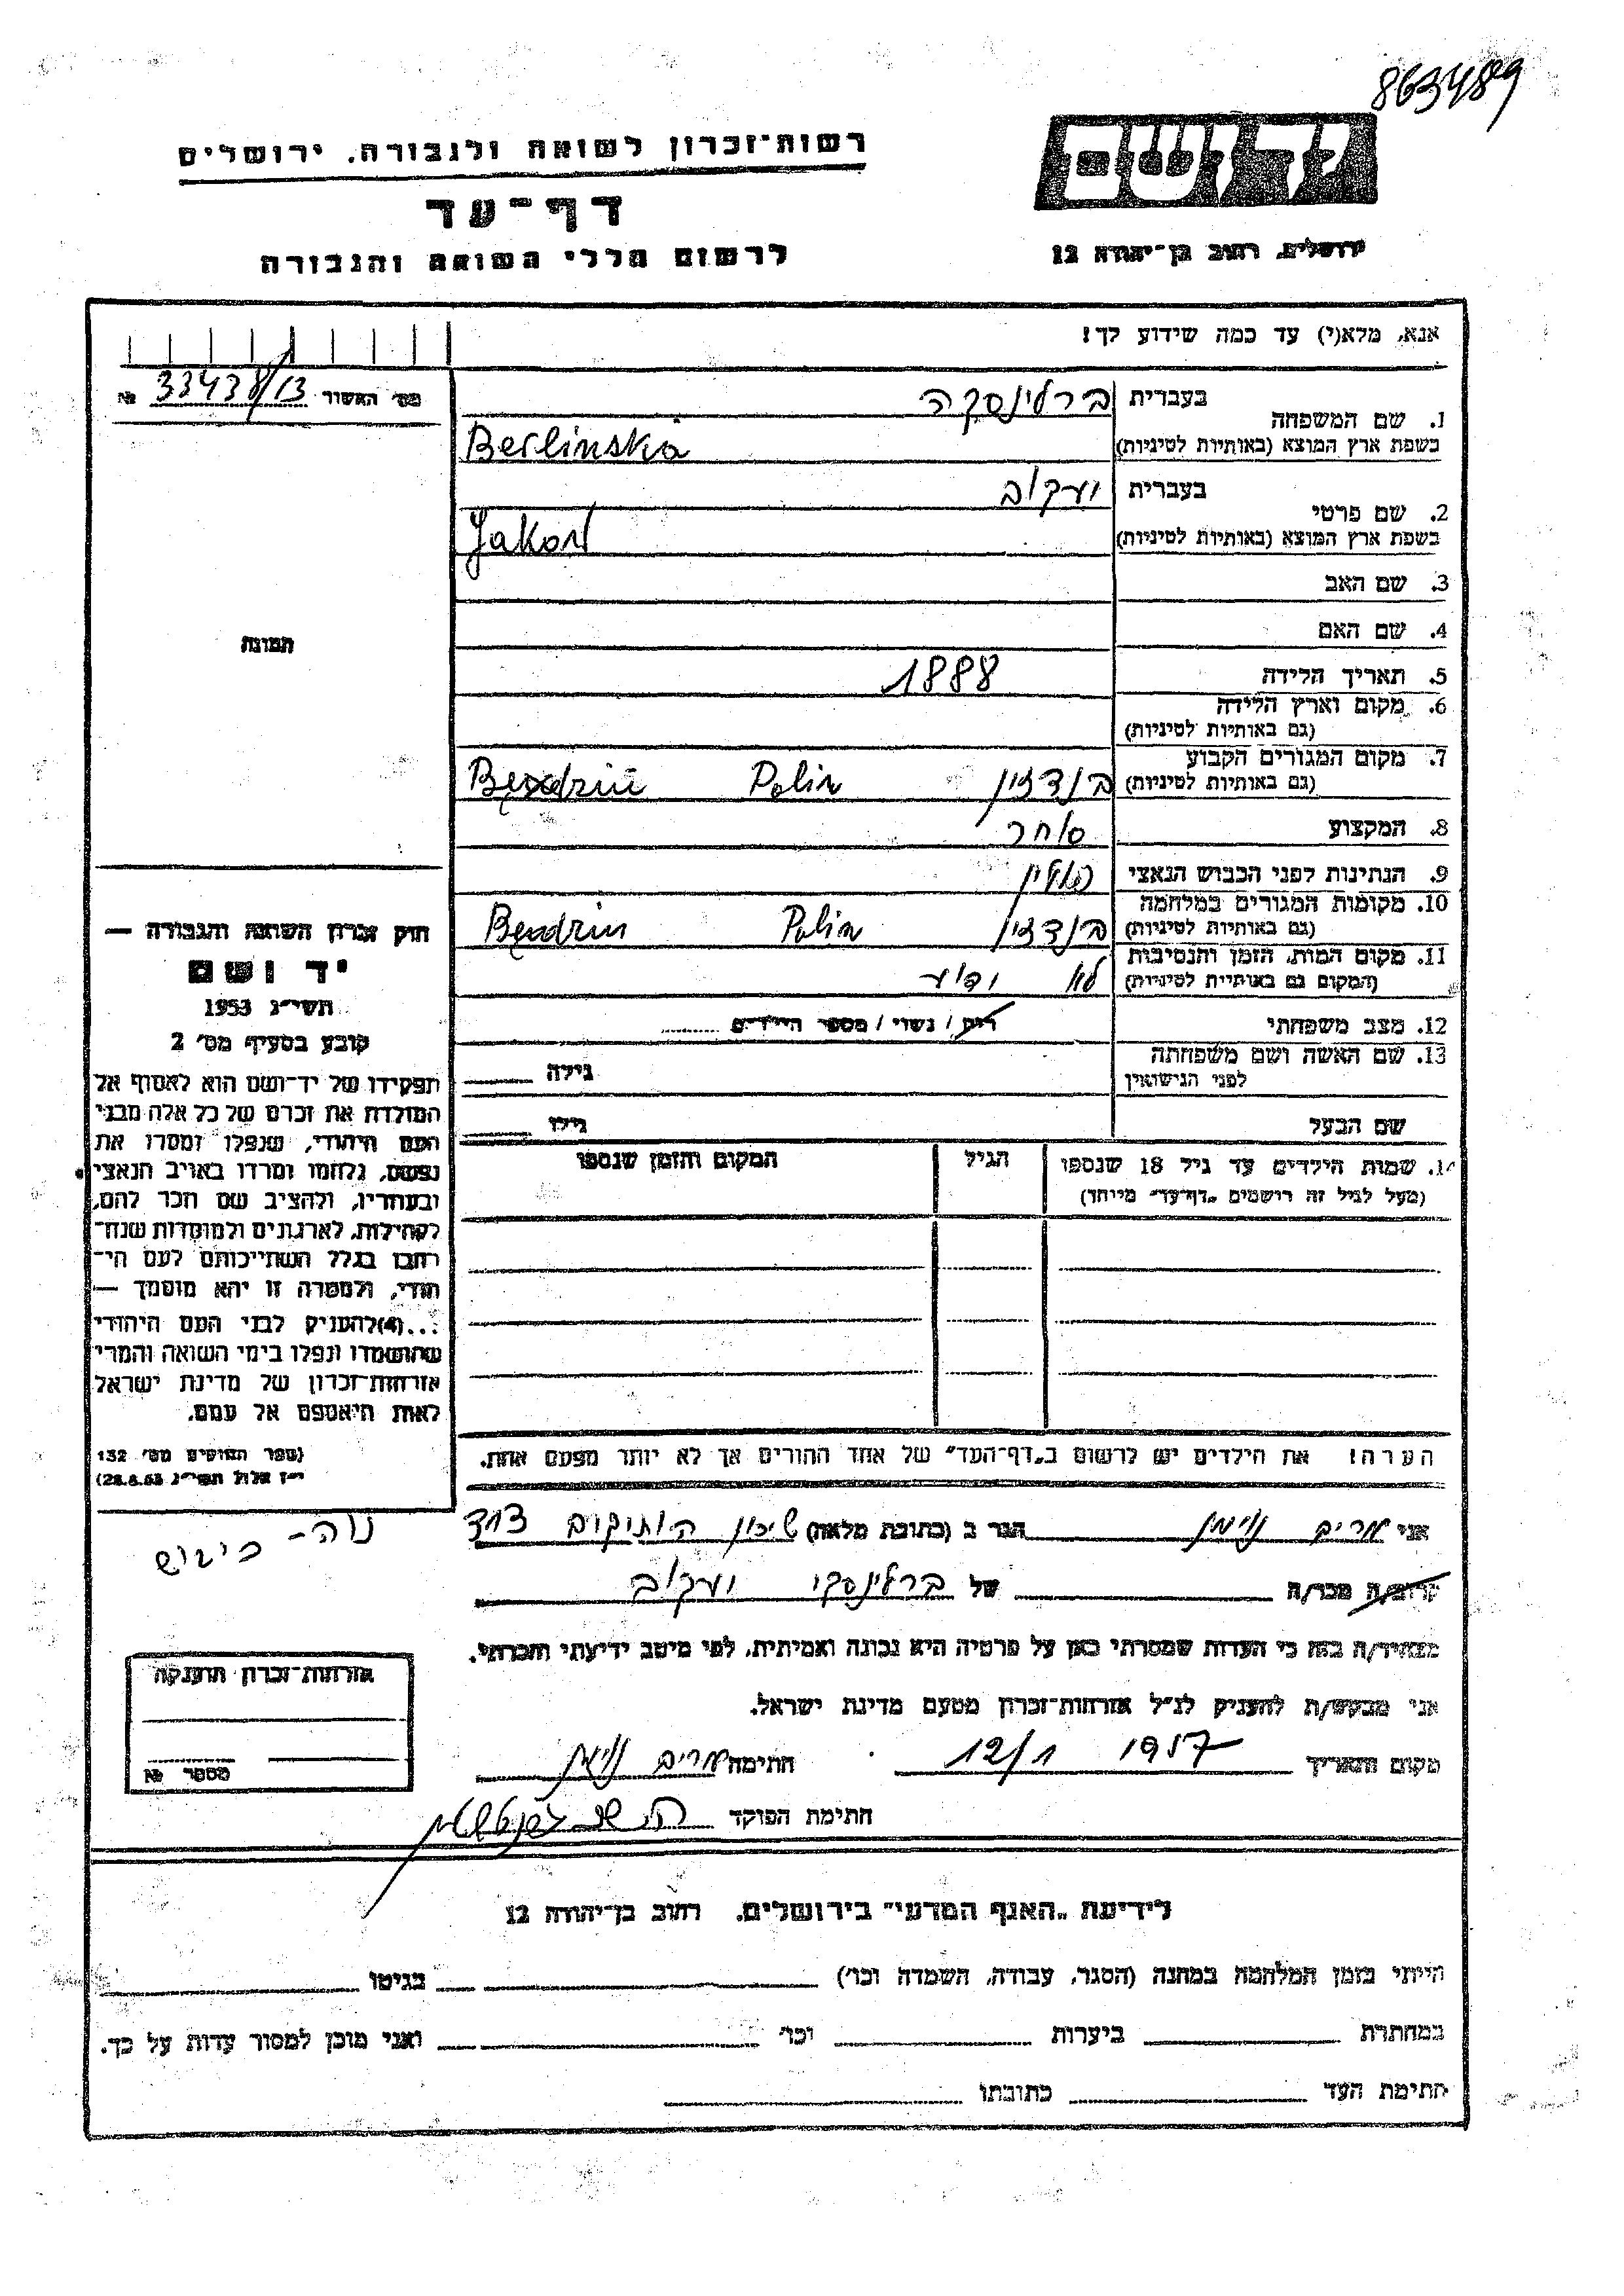 863489
רשות־זכרון לשואה ולגבורה. ירושלים
דף־עד
לרשום חללי השואה והגבורה
יד ושם
ירושלים, רחוב בן־יהודה 12
אנא, מלא(י) עד כמה שידוע לך!
מס' האשור 33438/13 №
1. שם המשפחה
בעברית ברלינסקה
בשפת ארץ המוצא (באותיות לטיניות) Berlinska
2. שם פרטי
בעברית יעקוב
בשפת ארץ המוצא (באותיות לטיניות) Jakob
3. שם האב
4. שם האם
תמונה
5. תאריך הלידה 1888
6. מקום וארץ הלידה
(גם באותיות לטיניות)
7. מקום המגורים הקבוע
(גם באותיות לטיניות) בנדזין Polin
8. המקצוע סוחר
9. הנתינות לפני הכבוש הנאצי פולין
10. מקומות המגורים במלחמה
(גם באותיות לטיניות) בנדזין Polin
11. מקום המות, הזמן והנסיבות
(המקום גם באותיות לטיניות) לא ידוע
12. מצב משפחתי רוק / נשוי / מספר הילדים
13. שם האשה ושם משפחתה
לפני הנישואין
גילה
שם הבעל גילו
14. שמות הילדים עד גיל 18 שנספו
(מעל לגיל זה רושמים „דף־עד" מיוחד)
הגיל
המקום והזמן שנספו
הערה! את הילדים יש לרשום ב„דף־העד" של אחד ההורים אך לא יותר מפעם אחת.
חוק זכרון השואה והגבורה —
יד ושם
תשי"ג 1953
קובע בסעיף מס' 2
תפקידו של יד־ושם הוא לאסוף אל
המולדת את זכרם של כל אלה מבני
העם היהודי, שנפלו ומסרו את
נפשם, נלחמו ומרדו באויב הנאצי
ובעוזריו, ולהציב שם וזכר להם,
לקהילות, לארגונים ולמוסדות שנח־
רבו בגלל השתייכותם לעם הי־
הודי, ולמטרה זו יהא מוסמך —
...(4)להעניק לבני העם היהודי
שהושמדו ונפלו בימי השואה והמרי
אזרחות־זכרון של מדינת ישראל
לאות היאספם אל עמם.
(ספר החוקים מס' 132
י"ז אלול תשי"ג 28.8.53)
אני הגר ב (כתובת מלאה) שיכון הותיקים
קרוב/ה מכר/ה של ברלינסקי יעקוב
מצהיר/ה בזה כי העדות שמסרתי כאן על פרטיה היא נכונה ואמיתית, לפי מיטב ידיעתי והכרתי.
אני מבקש/ת להעניק לנ"ל אזרחות־זכרון מטעם מדינת ישראל.
מקום ותאריך 12/1 1957 חתימה
חתימת הפוקד
אזרחות־זכרון הוענקה
מספר №
לידיעת „האגף המדעי" בירושלים. רחוב בן־יהודה 12
הייתי בזמן המלחמה במחנה (הסגר, עבודה, השמדה וכו') בגיטו
במחתרת ביערות וכו' ואני מוכן למסור עדות על כך.
חתימת העד כתובתו